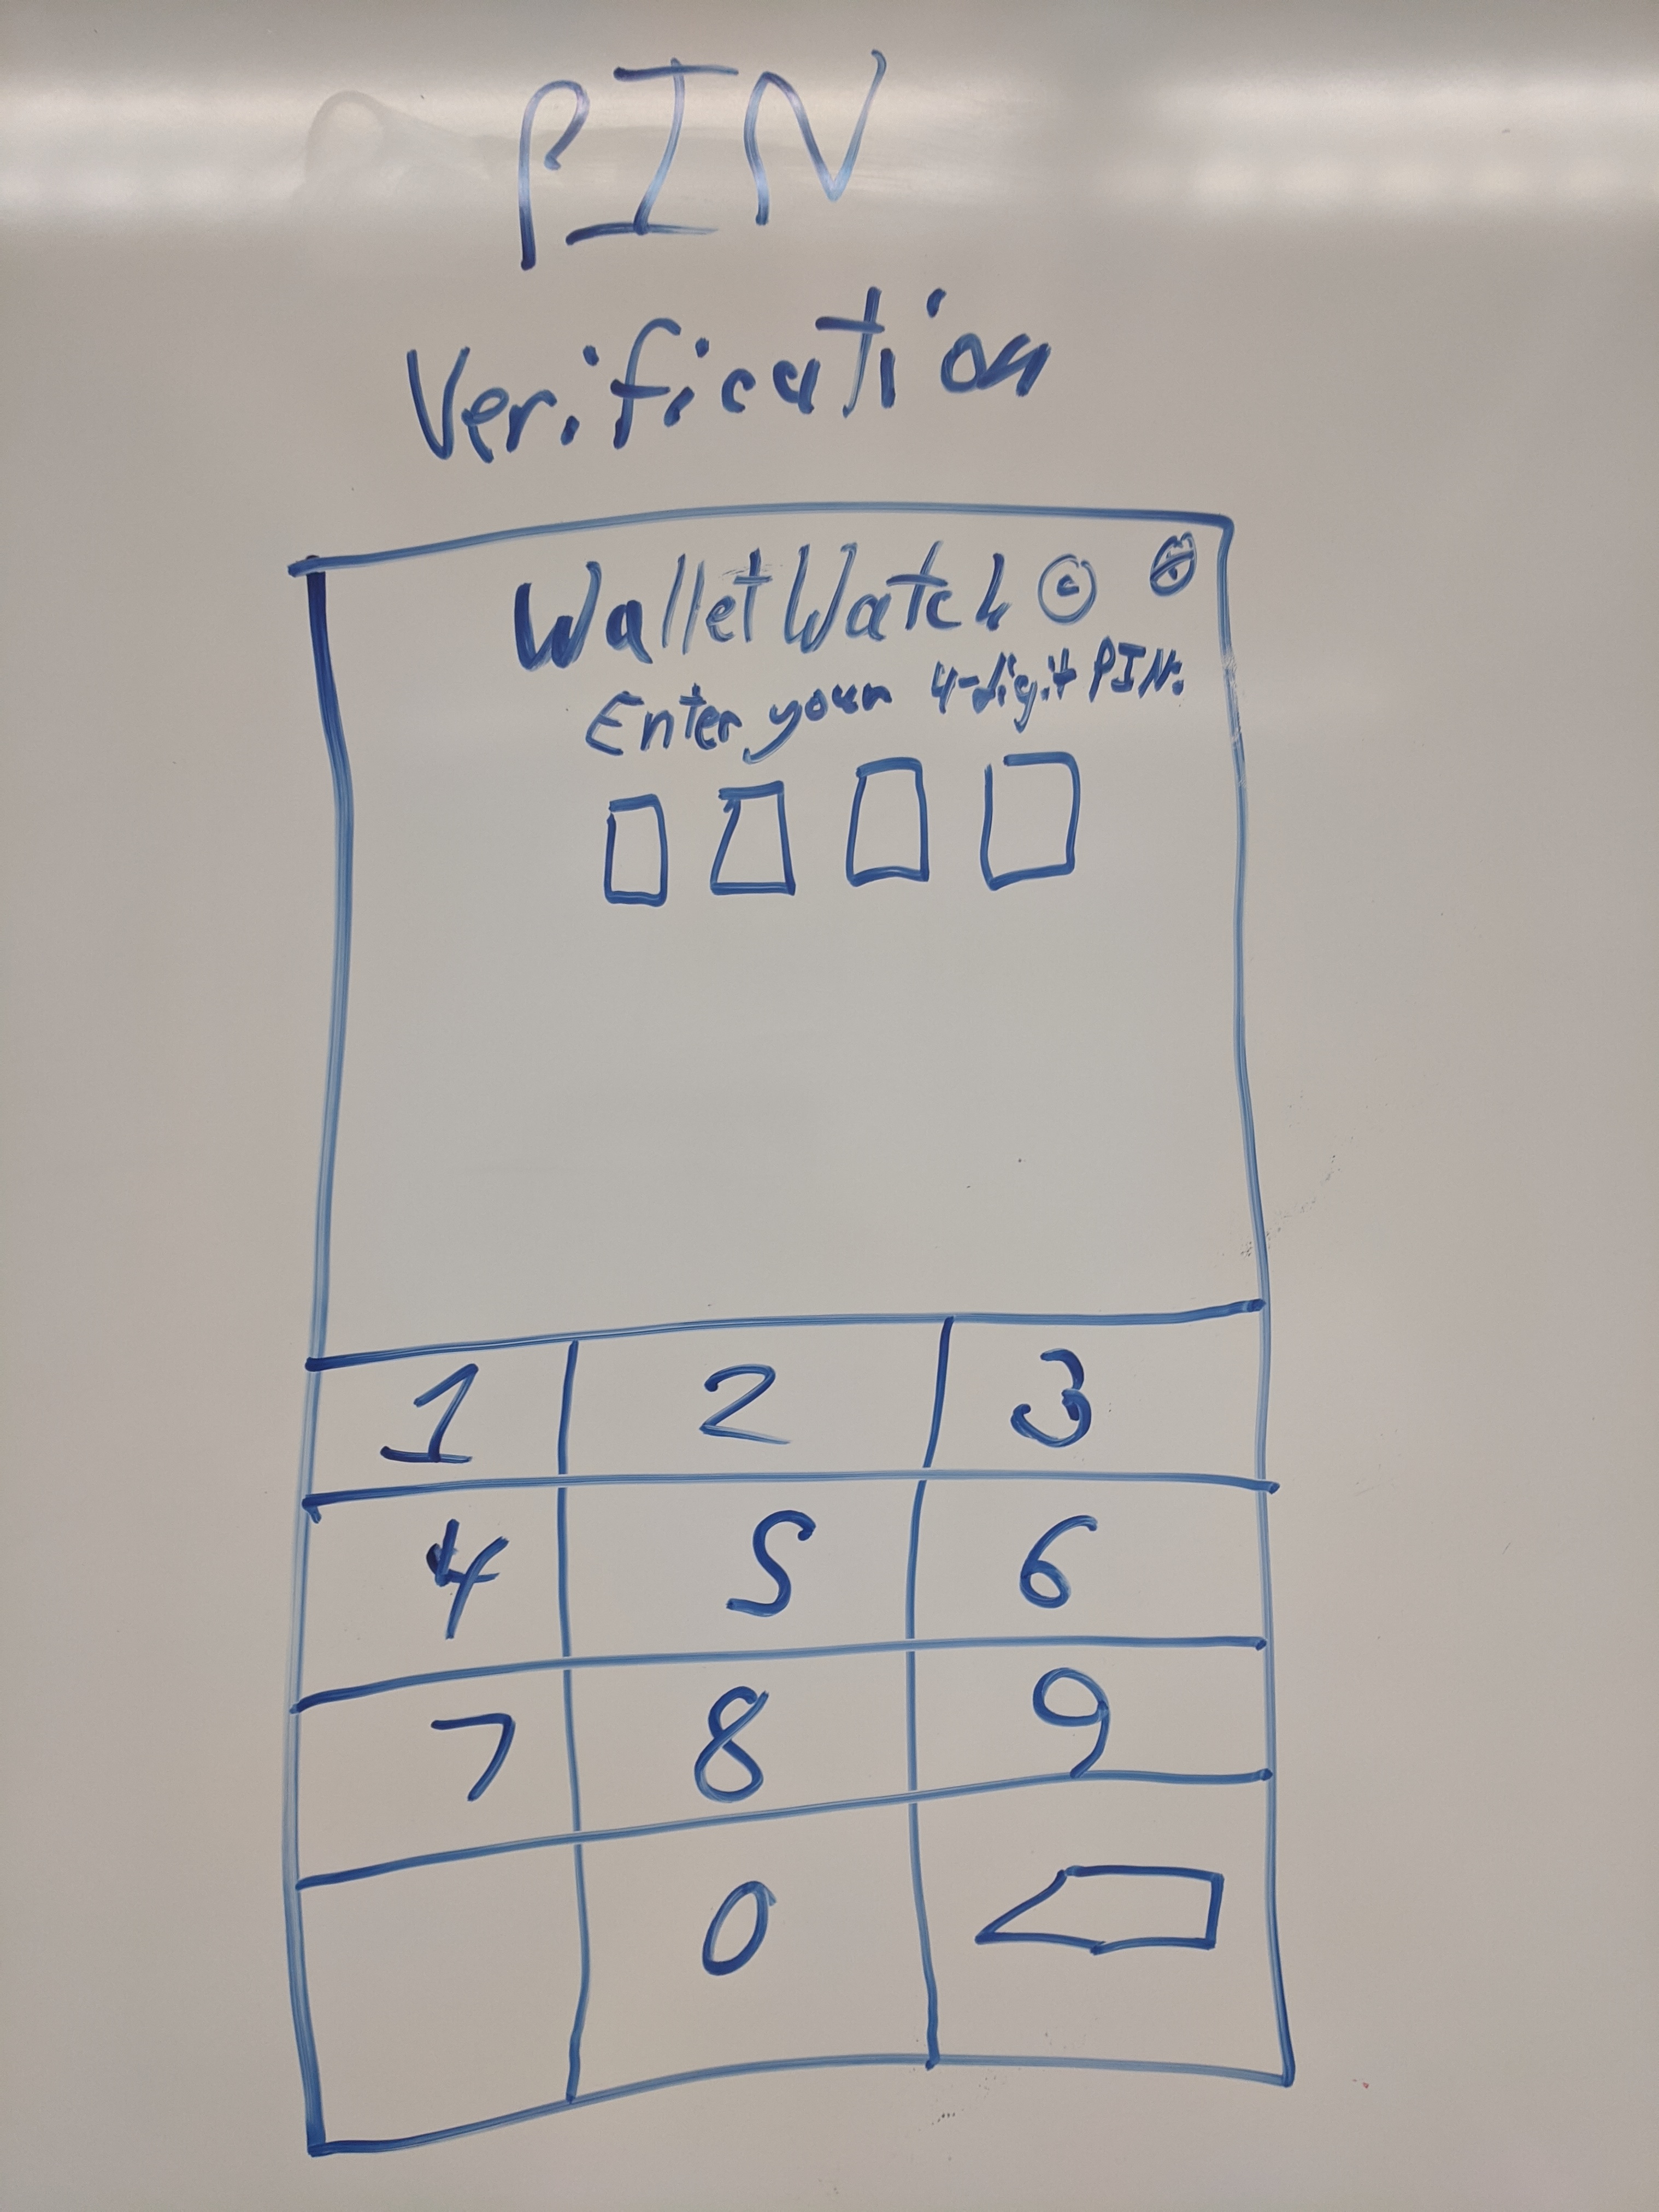 PIN
Verification
WalletWatch ©
Enter your 4-digit PIN:
1 2 3
4 5 6
7 8 9
0